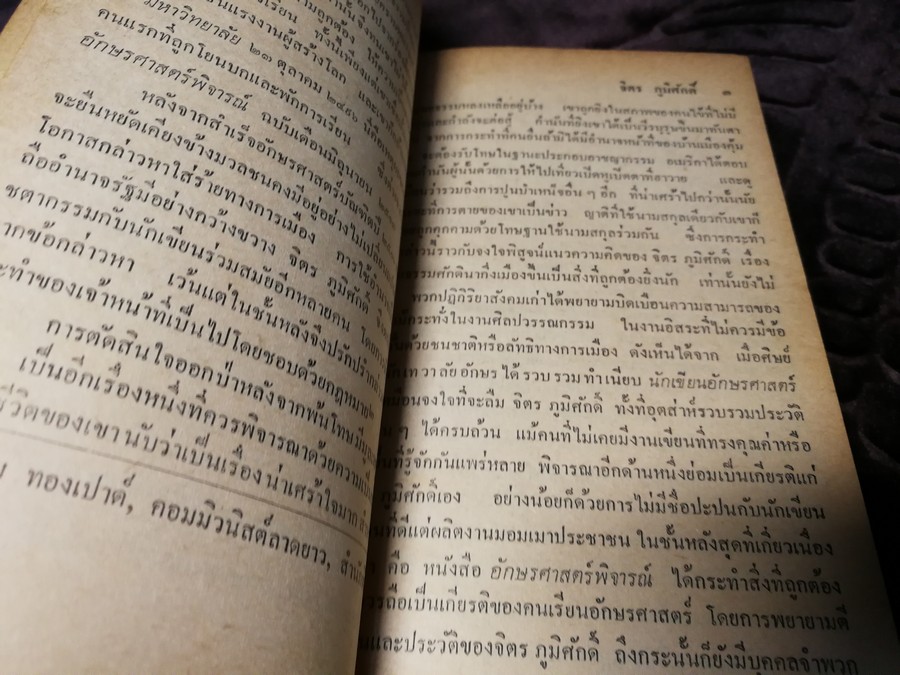 มหาวิทยาลัย ๒๓ ตุลาคม ๒๔๙๖
คนแรกที่ถูกโยนบกและพักการเรียน
อักษรศาสตร์พิจารณ์ ฉบับเดือนมิถุนายน
หลังจากสำเร็จอักษรศาสตร์บัณฑิตปี
จะยืนหยัดเคียงข้างมวลชนคงมีอยู่อย่างไม่เปลี่ยน
โอกาสกล่าวหาใส่ร้ายทางการเมือง การใช้อำนาจ
ถืออำนาจรัฐมีอย่างกว้างขวาง จิตร ภูมิศักดิ์
ชตากรรมกับนักเขียนร่วมสมัยอีกหลายคน โดย
ข้อกล่าวหา เว้นแต่ในชั้นหลังจึงปรักปรำ
ทำของเจ้าหน้าที่เป็นไปโดยชอบด้วยกฎหมาย๒
การตัดสินใจออกป่าหลังจากพ้นโทษ
เป็นอีกเรื่องหนึ่งที่ควรพิจารณาด้วยความ
ชีวิตของเขานับว่าเป็นเรื่องน่าเศร้าใจมาก
ทองเปาด์, คอมมิวนิสต์ลาดยาว,
จิตร ภูมิศักดิ์ ๓
หลงเหลืออยู่บ้าง เขาถูกยิงในสภาพของคนไร้ที่ไม่มี
กำลังจะต่อสู้ กำนันที่ยิงเขาได้เป็นวีรบุรุษขึ้นมาทันตา
จากการกระทำที่คนอื่นถ้ามิได้มีอำนาจหน้าที่ของบ้านเมืองคุ้ม
จะต้องรับโทษในฐานะประกอบอาชญากรรม อเมริกาได้ตอบ
กำนันผู้นั้นด้วยการให้ไปเที่ยวเบ็ดหูเบ็ดตาที่ฮาวาย และดู
ว่ารวมถึงการปูนบำเหน็จอื่น ๆ อีก ที่น่าเศร้าไปกว่านั้นนัย
ที่การตายของเขาเป็นข่าว ญาติที่ใช้นามสกุลเดียวกับเขาก็
ถูกคุกคามด้วยโทษฐานใช้นามสกุลร่วมกัน ซึ่งการกระทำ
ราวกับจงใจพิสูจน์แนวความคิดของ จิตร ภูมิศักดิ์ เรื่อง
ศักดินากึ่งเมืองขึ้นเป็นสิ่งที่ถูกต้องยิ่งนัก เท่านั้นยังไม่
พวกปฏิกิริยาสังคมเก่าได้พยายามบิดเบือนความสามารถของ
กระทั่งในงานศิลปวรรณกรรม ในงานอิสระที่ไม่ควรมีข้อ
ด้วยชนชาติหรือลัทธิทางการเมือง ดังเห็นได้จาก เมื่อศิษย์
เทวาลัยอักษร ได้รวบรวมทำเนียบ นักเขียนอักษรศาสตร์
จงใจที่จะลืม จิตร ภูมิศักดิ์ ทั้งที่อุตส่าห์รวบรวมประวัติ
ๆ ได้ครบล้วน แม้คนที่ไม่เคยมีงานเขียนที่ทรงคุณค่าหรือ
ที่รู้จักกันแพร่หลาย พิจารณาอีกด้านหนึ่งย่อมเป็นเกียรติแก่
ภูมิศักดิ์เอง อย่างน้อยก็ด้วยการไม่มีชื่อปะปนกับนักเขียน
ที่ดีแต่ผลิตงานมอมเมาประชาชน ในชั้นหลังสุดที่เกี่ยวเนื่อง
คือ หนังสือ อักษรศาสตร์พิจารณ์ ได้กระทำสิ่งที่ถูกต้อง
ถือเป็นเกียรติของคนเรียนอักษรศาสตร์ โดยการพยายามตี
และประวัติของจิตร ภูมิศักดิ์ ถึงกระนั้นก็ยังมีบุคคลจำพวก